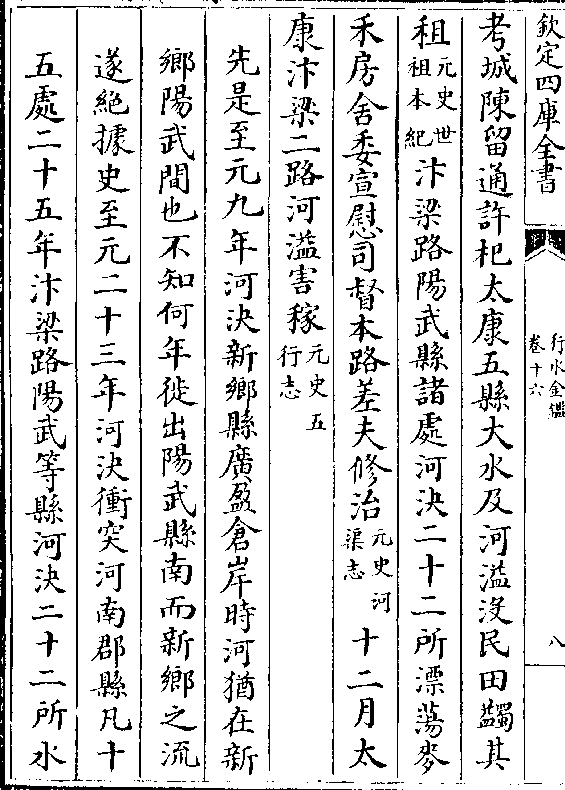 欽定四庫全書
行水金鑑
卷十六
八
考城陳留通許杞太康五縣大水及河溢没民田蠲其
租元史世祖本紀汴梁路陽武縣諸處河決二十二所漂蕩麥
禾房舍委宣慰司督本路差夫修治元史河渠志十二月太
康汴梁二路河溢害稼元史五行志
先是至元九年河決新鄉縣廣盈倉岸時河猶在新
鄉陽武間也不知何年徙出陽武縣南而新鄉之流
遂絶據史至元二十三年河決衝突河南郡縣凡十
五處二十五年汴梁路陽武等縣河決二十二所水